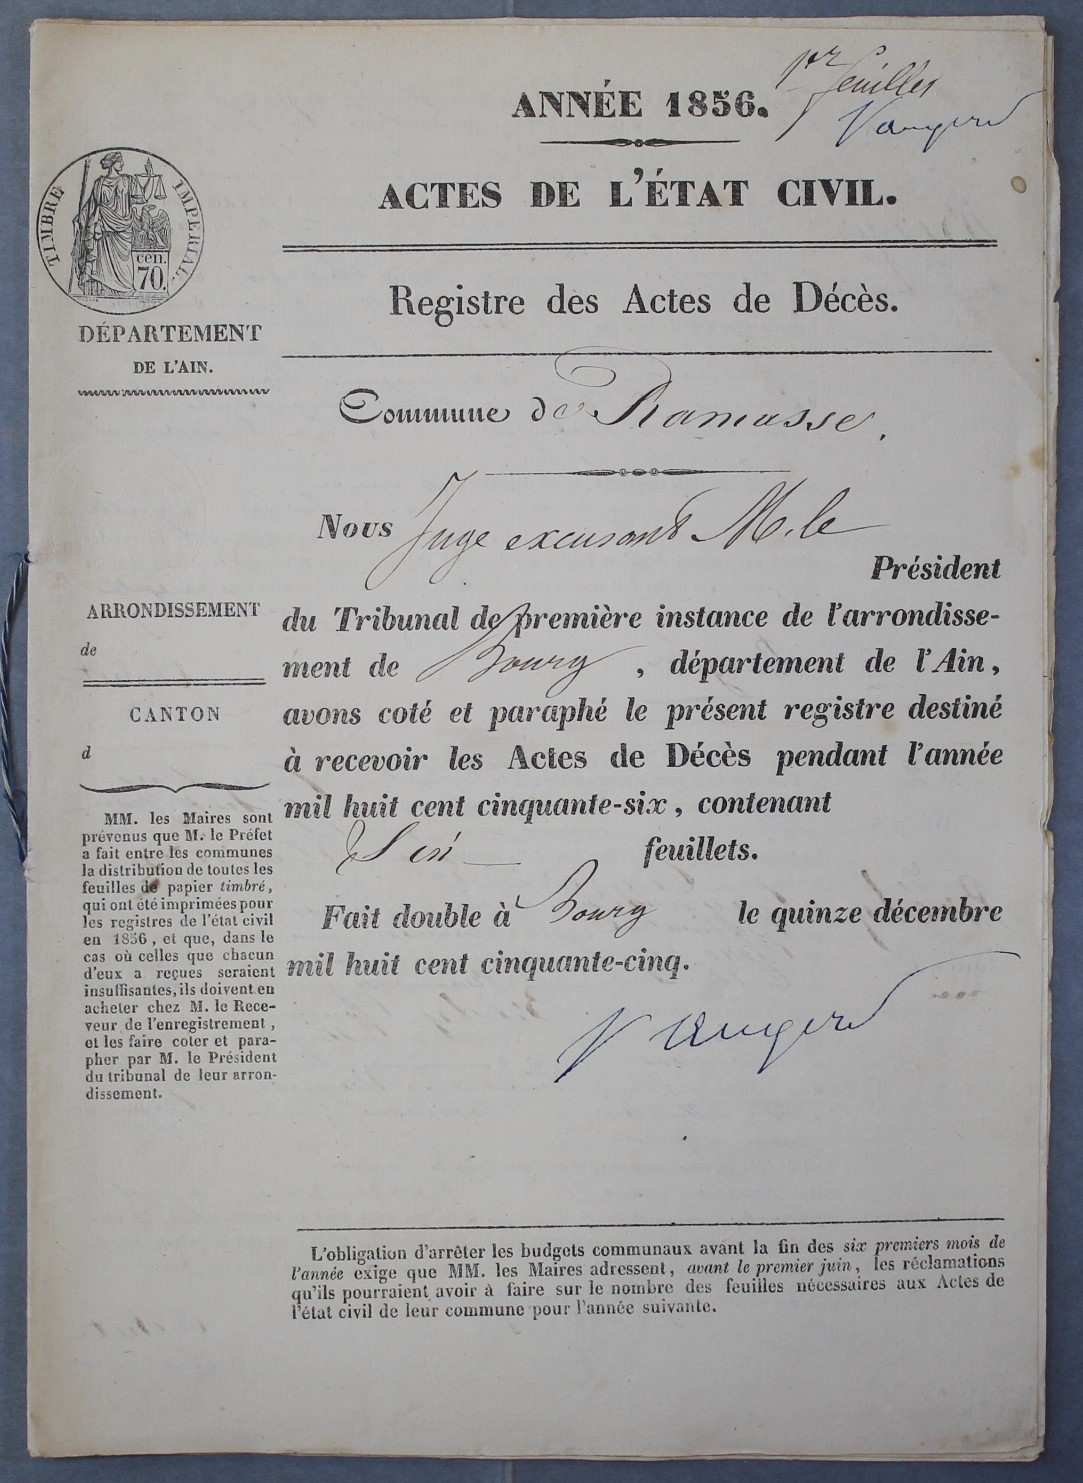 1er feuillet
ANNÉE 1856.
ACTES DE L'ÉTAT CIVIL.
TIMBRE IMPERIAL.
cen.
70.
DÉPARTEMENT
DE L'AIN.
Registre des Actes de Décès.
Commune de Ramasse.
Nous Juge excusant M. le
Président
du Tribunal de première instance de l'arrondisse-
ment de Bourg, département de l'Ain,
avons coté et paraphé le présent registre destiné
à recevoir les Actes de Décès pendant l'année
mil huit cent cinquante-six, contenant
Six feuillets.
Fait double à Bourg le quinze décembre
mil huit cent cinquante-cinq.
ARRONDISSEMENT
de
CANTON
d
MM. les Maires sont
prévenus que M. le Préfet
a fait entre les communes
la distribution de toutes les
feuilles de papier timbré,
qui ont été imprimées pour
les registres de l'état civil
en 1856, et que, dans le
cas où celles que chacun
d'eux a reçues seraient
insuffisantes, ils doivent en
acheter chez M. le Rece-
veur de l'enregistrement,
et les faire coter et para-
pher par M. le Président
du tribunal de leur arron-
dissement.
L'obligation d'arrêter les budgets communaux avant la fin des six premiers mois de
l'année exige que MM. les Maires adressent, avant le premier juin, les réclamations
qu'ils pourraient avoir à faire sur le nombre des feuilles nécessaires aux Actes de
l'état civil de leur commune pour l'année suivante.